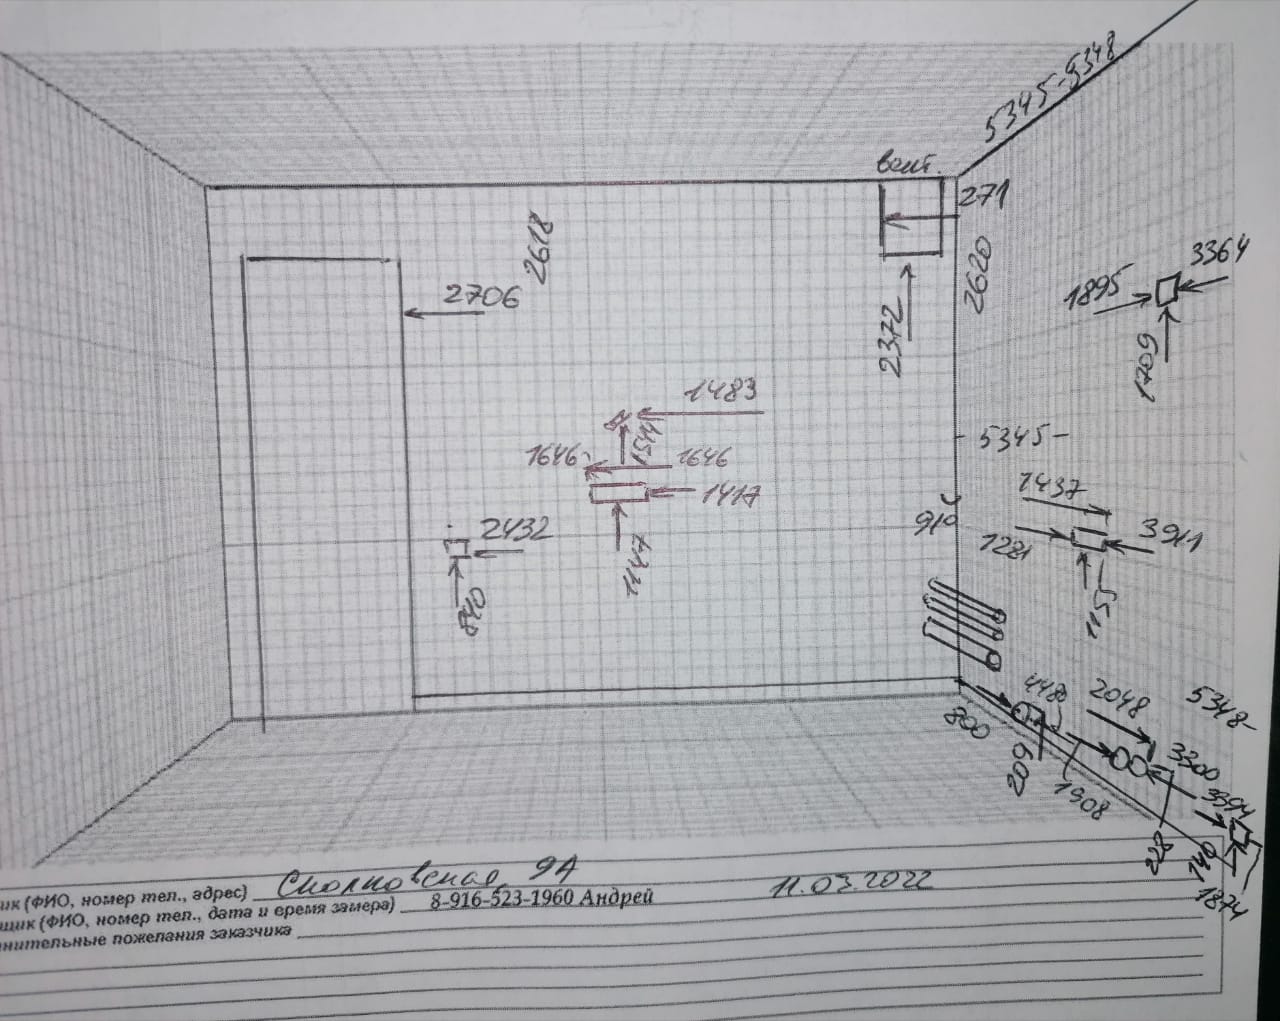 5345-5348
вент.
271
2618
2620
2706
2372
3364
1895
1709
1483
1544
1646
1646
1417
1147
5345-
1437
910
1281
3911
1155
2432
840
4480
2048
5348-
800
209
1908
3300
3394
228
1874
щик (ФИО, номер тел., адрес) Сколковская 9А
щик (ФИО, номер тел., дата и время замера) 8-916-523-1960 Андрей 11.03.2022
нительные пожелания заказчика